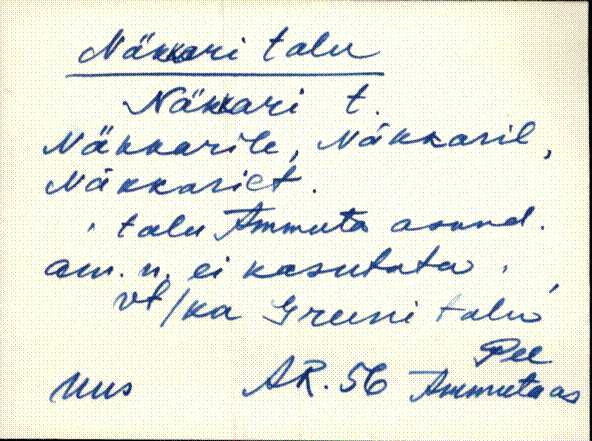 Näkkari talu
Näkkari t.
Näkkarile, Näkkaril,
Näkkarist.
, talu Ammuta asund.
am. n. ei kasutata.
vt/ka Greeni talu
Pee
Uus AR. 56 Ammuta as